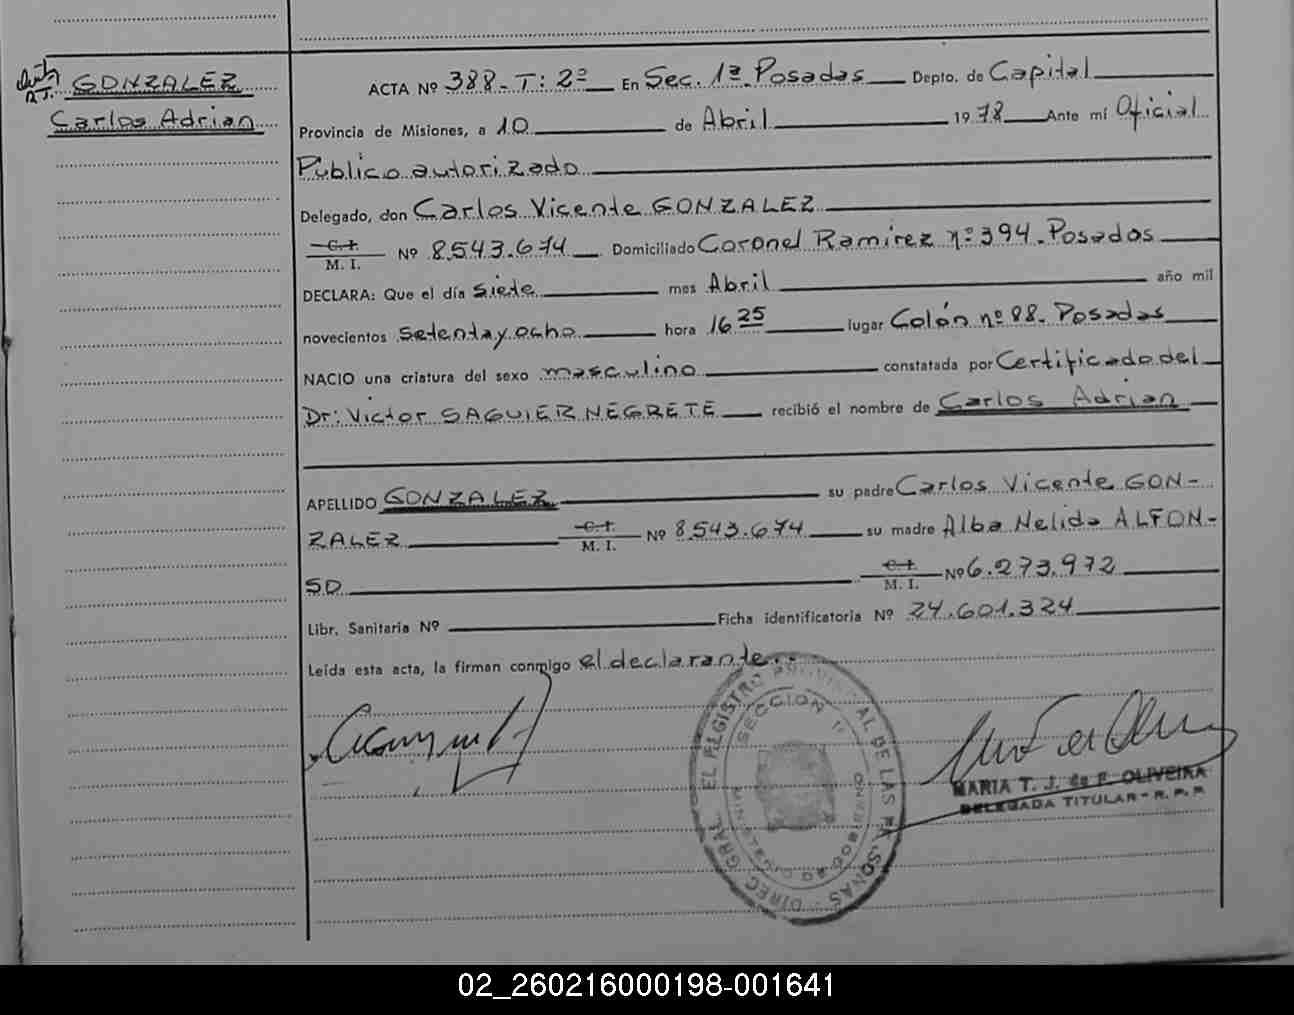 GONZALEZ
Carlos Adrian
ACTA Nº 388 - T: 2º En Sec. 1ª Posadas Depto. de Capital
Provincia de Misiones, a 10 de Abril 1978 Ante mí Oficial
Público autorizado
Delegado, don Carlos Vicente GONZALEZ
C. I.
M. I. Nº 8.543.674 Domiciliado Coronel Ramirez nº 394 - Posadas
DECLARA: Que el día siete mes Abril año mil
novecientos setenta y ocho hora 16 25 lugar Colón nº 88 - Posadas
NACIO una criatura del sexo masculino constatada por Certificado del
Dr: Victor SAGUIER NEGRETE recibió el nombre de Carlos Adrian
APELLIDO GONZALEZ su padre Carlos Vicente GON-
ZALEZ C. I. M. I. Nº 8.543.674 su madre Alba Nelida ALFON-
SO C. I. M. I. Nº 6.273.972
Libr. Sanitaria Nº Ficha identificatoria Nº 24.601.324
Leída esta acta, la firman conmigo el declarante..
DIREC. GRAL. EL REGISTRO PROVINCIAL DE LAS PERSONAS
SECCION 1ª
MARIA T. J. de F. OLIVEIRA
DELEGADA TITULAR - R. P. P.
02_260216000198-001641